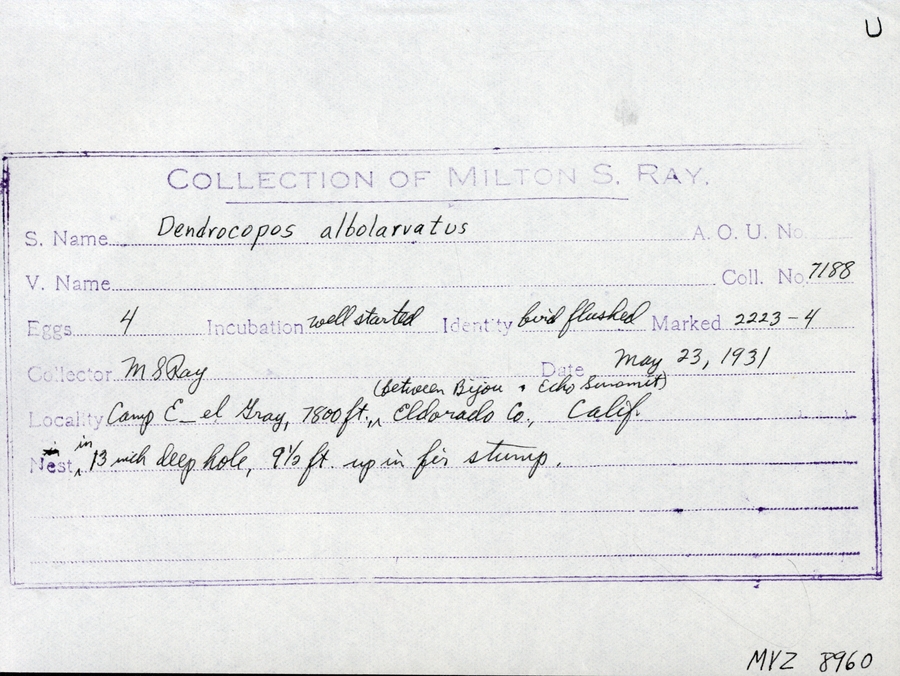 U
COLLECTION OF MILTON S. RAY.
S. Name Dendrocopos albolarvatus A. O. U. No.
V. Name Coll. No. 7188
Eggs 4 Incubation well started Identity bird flushed Marked 2223-4
Collector M S Ray Date May 23, 1931
(between Bijou & Echo Summit)
Locality Camp E-el Gray, 7800 ft., Eldorado Co., Calif.
Nest in 13 inch deep hole, 9½ ft. up in fir stump.
MVZ 8960